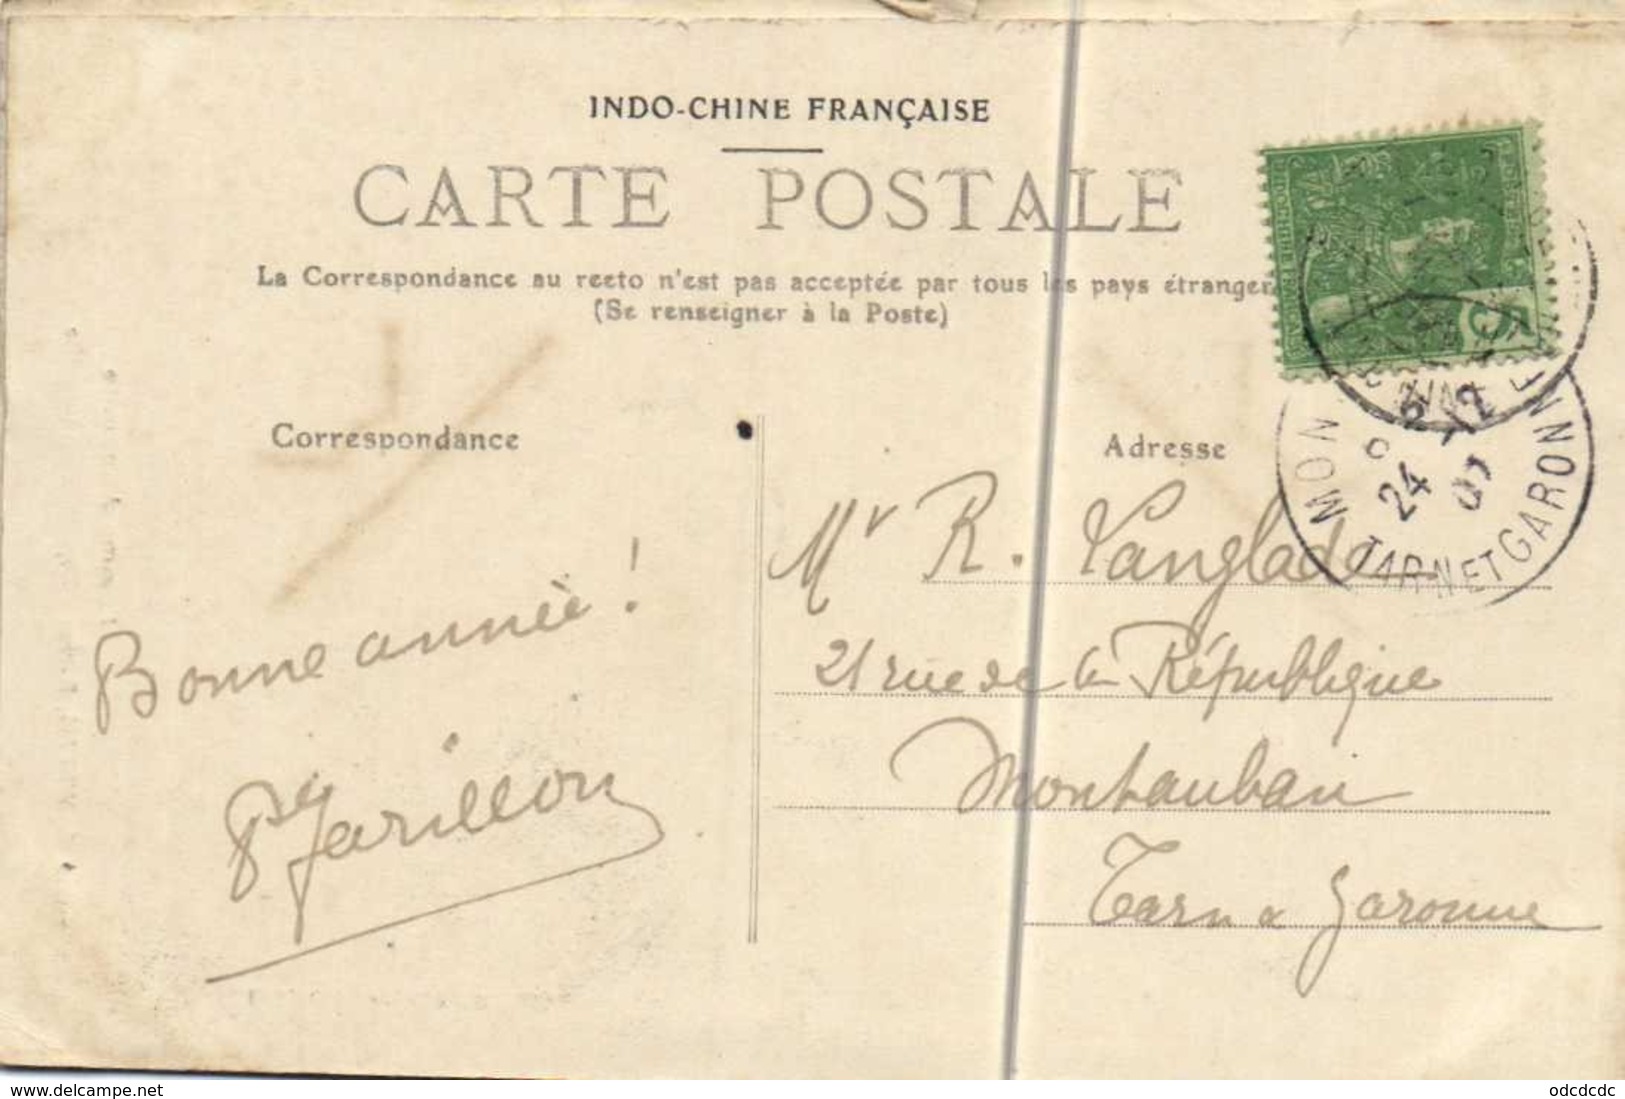 INDO-CHINE FRANÇAISE
CARTE POSTALE
La Correspondance au recto n'est pas acceptée par tous les pays étranger
(Se renseigner à la Poste)
Correspondance
Adresse
Bonne année !
Jarillon
Mr R. Langlade
21 rue de la République
Montauban
Tarn & Garonne
5
MON
24 -12 07
TARN ET GARONNE
www.delcampe.net
odcdcdc